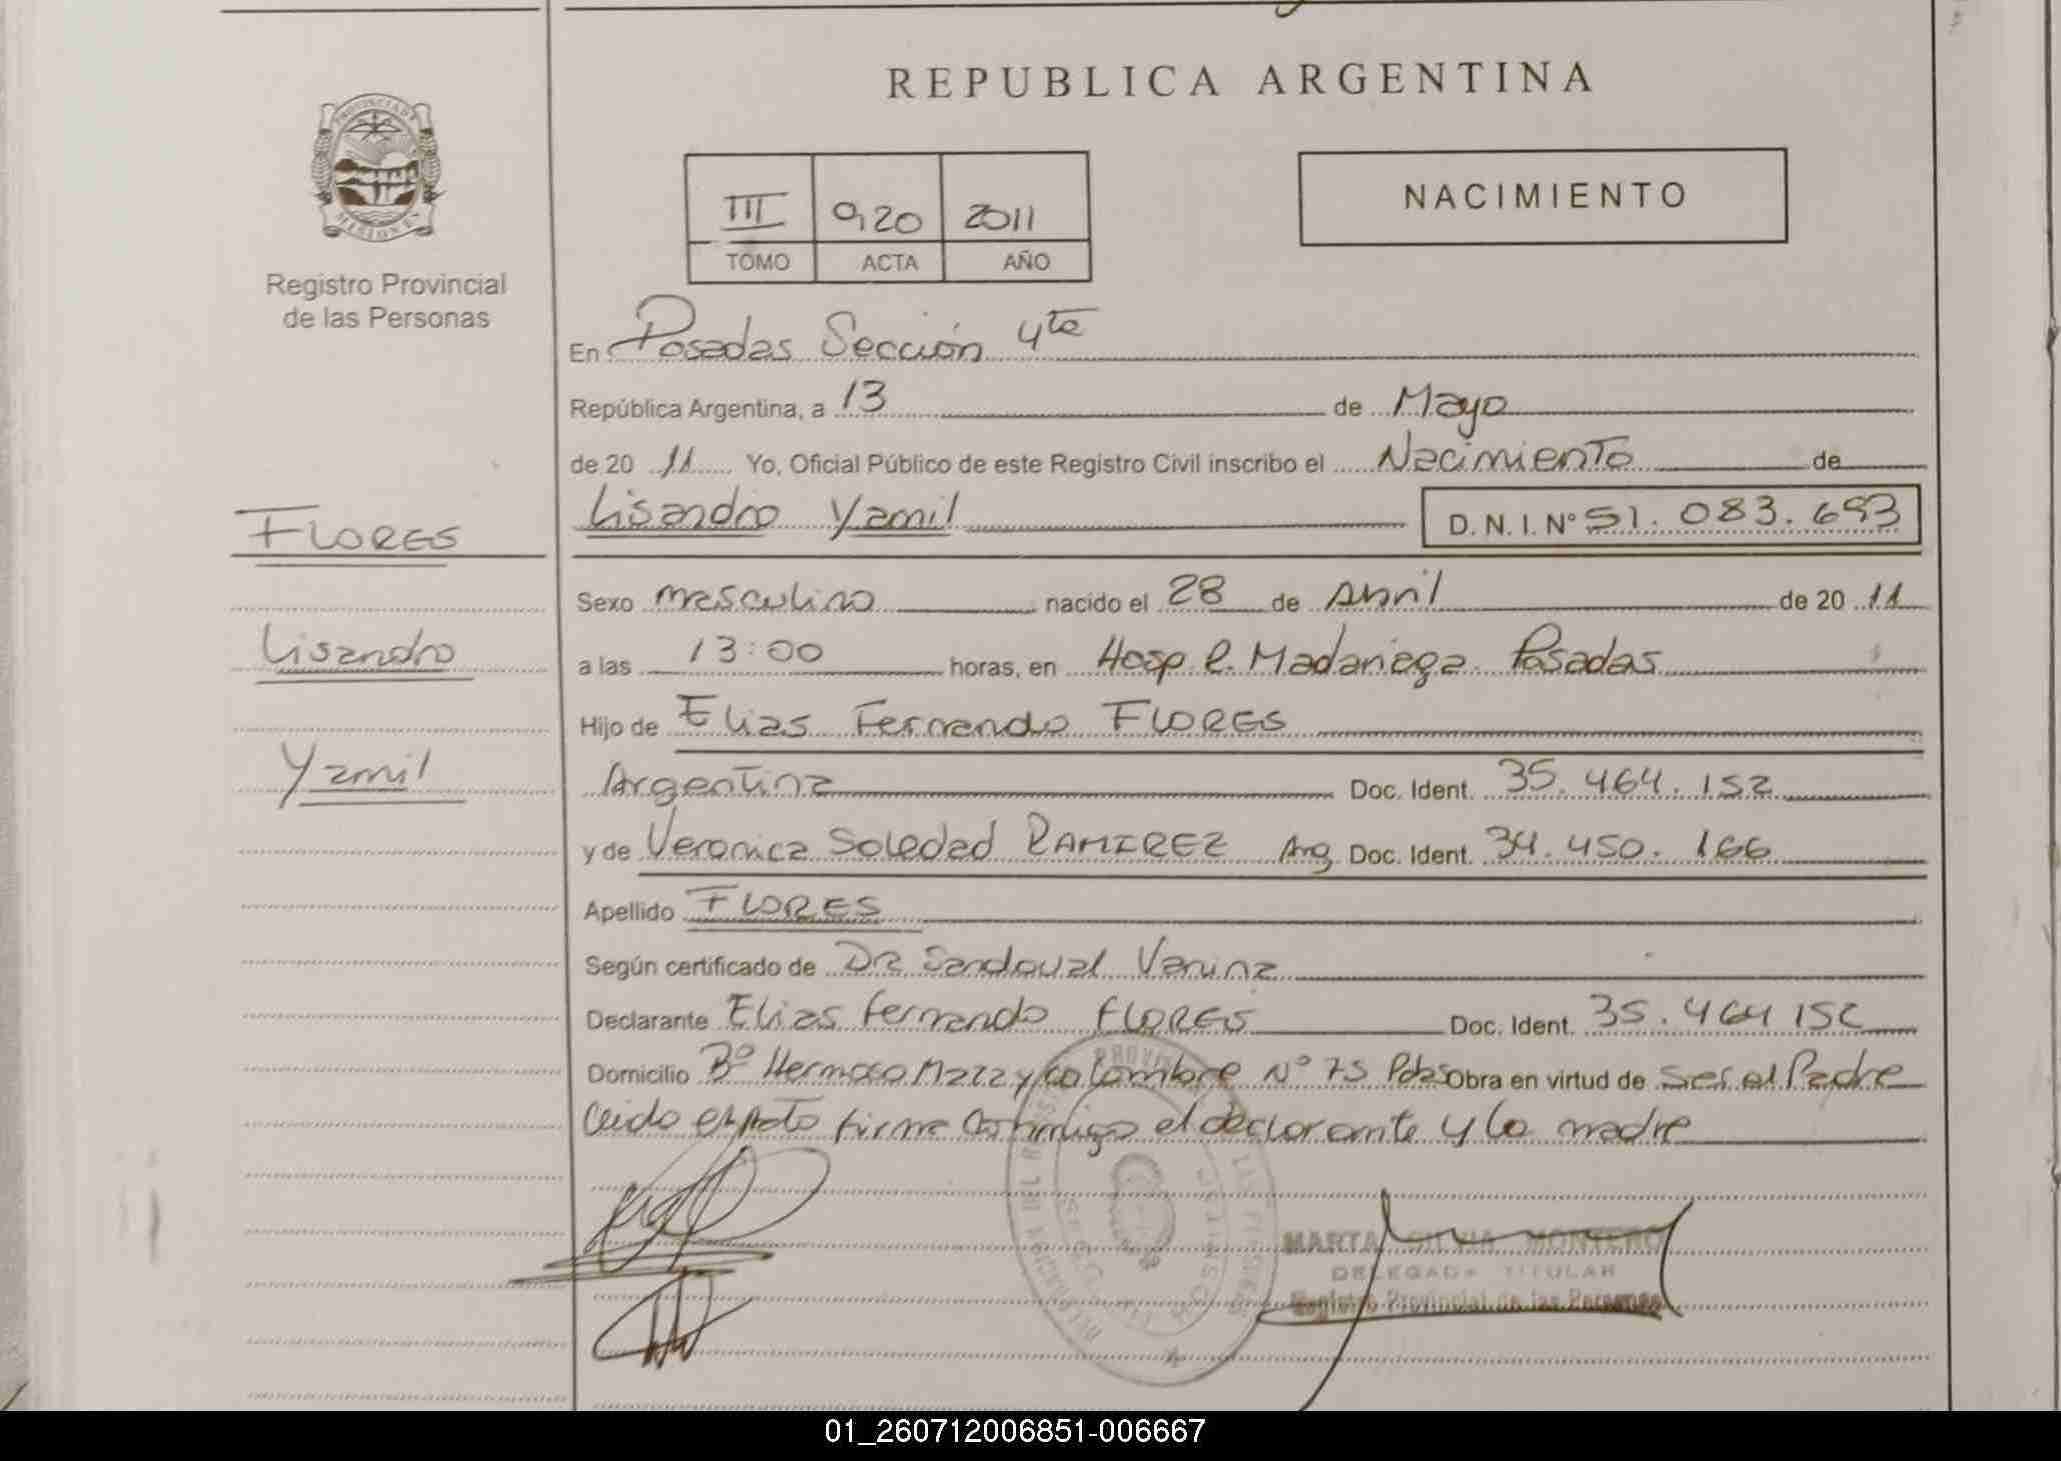 REPUBLICA ARGENTINA
PROVINCIA DE
MISIONES
Registro Provincial
de las Personas
III 920 2011
TOMO ACTA AÑO
NACIMIENTO
En Posadas Sección 4ta
República Argentina, a 13 de Mayo
de 20 11 Yo, Oficial Público de este Registro Civil inscribo el Nacimiento de
Lisandro Yamil D. N. I. Nº 51.083.693
FLORES
Lisandro
Yamil
Sexo masculino nacido el 28 de Abril de 20 11
a las 13:00 horas, en Hosp R. Madariaga Posadas
Hijo de Elias Fernando FLORES
Argentina Doc. Ident. 35.464.152
y de Veronica Soledad RAMIREZ Arg Doc. Ident. 34.450.166
Apellido FLORES
Según certificado de Dra Sandoval Vanina
Declarante Elias Fernando FLORES Doc. Ident. 35.464 152
Domicilio Bº Hermoso y Nº 75 Pdas Obra en virtud de ser el Padre
Leido el Acto firma conmigo el declarante y la madre
MARTA SILVIA MONTERO
DELEGADA TITULAR
Registro Provincial de las Personas
01_260712006851-006667